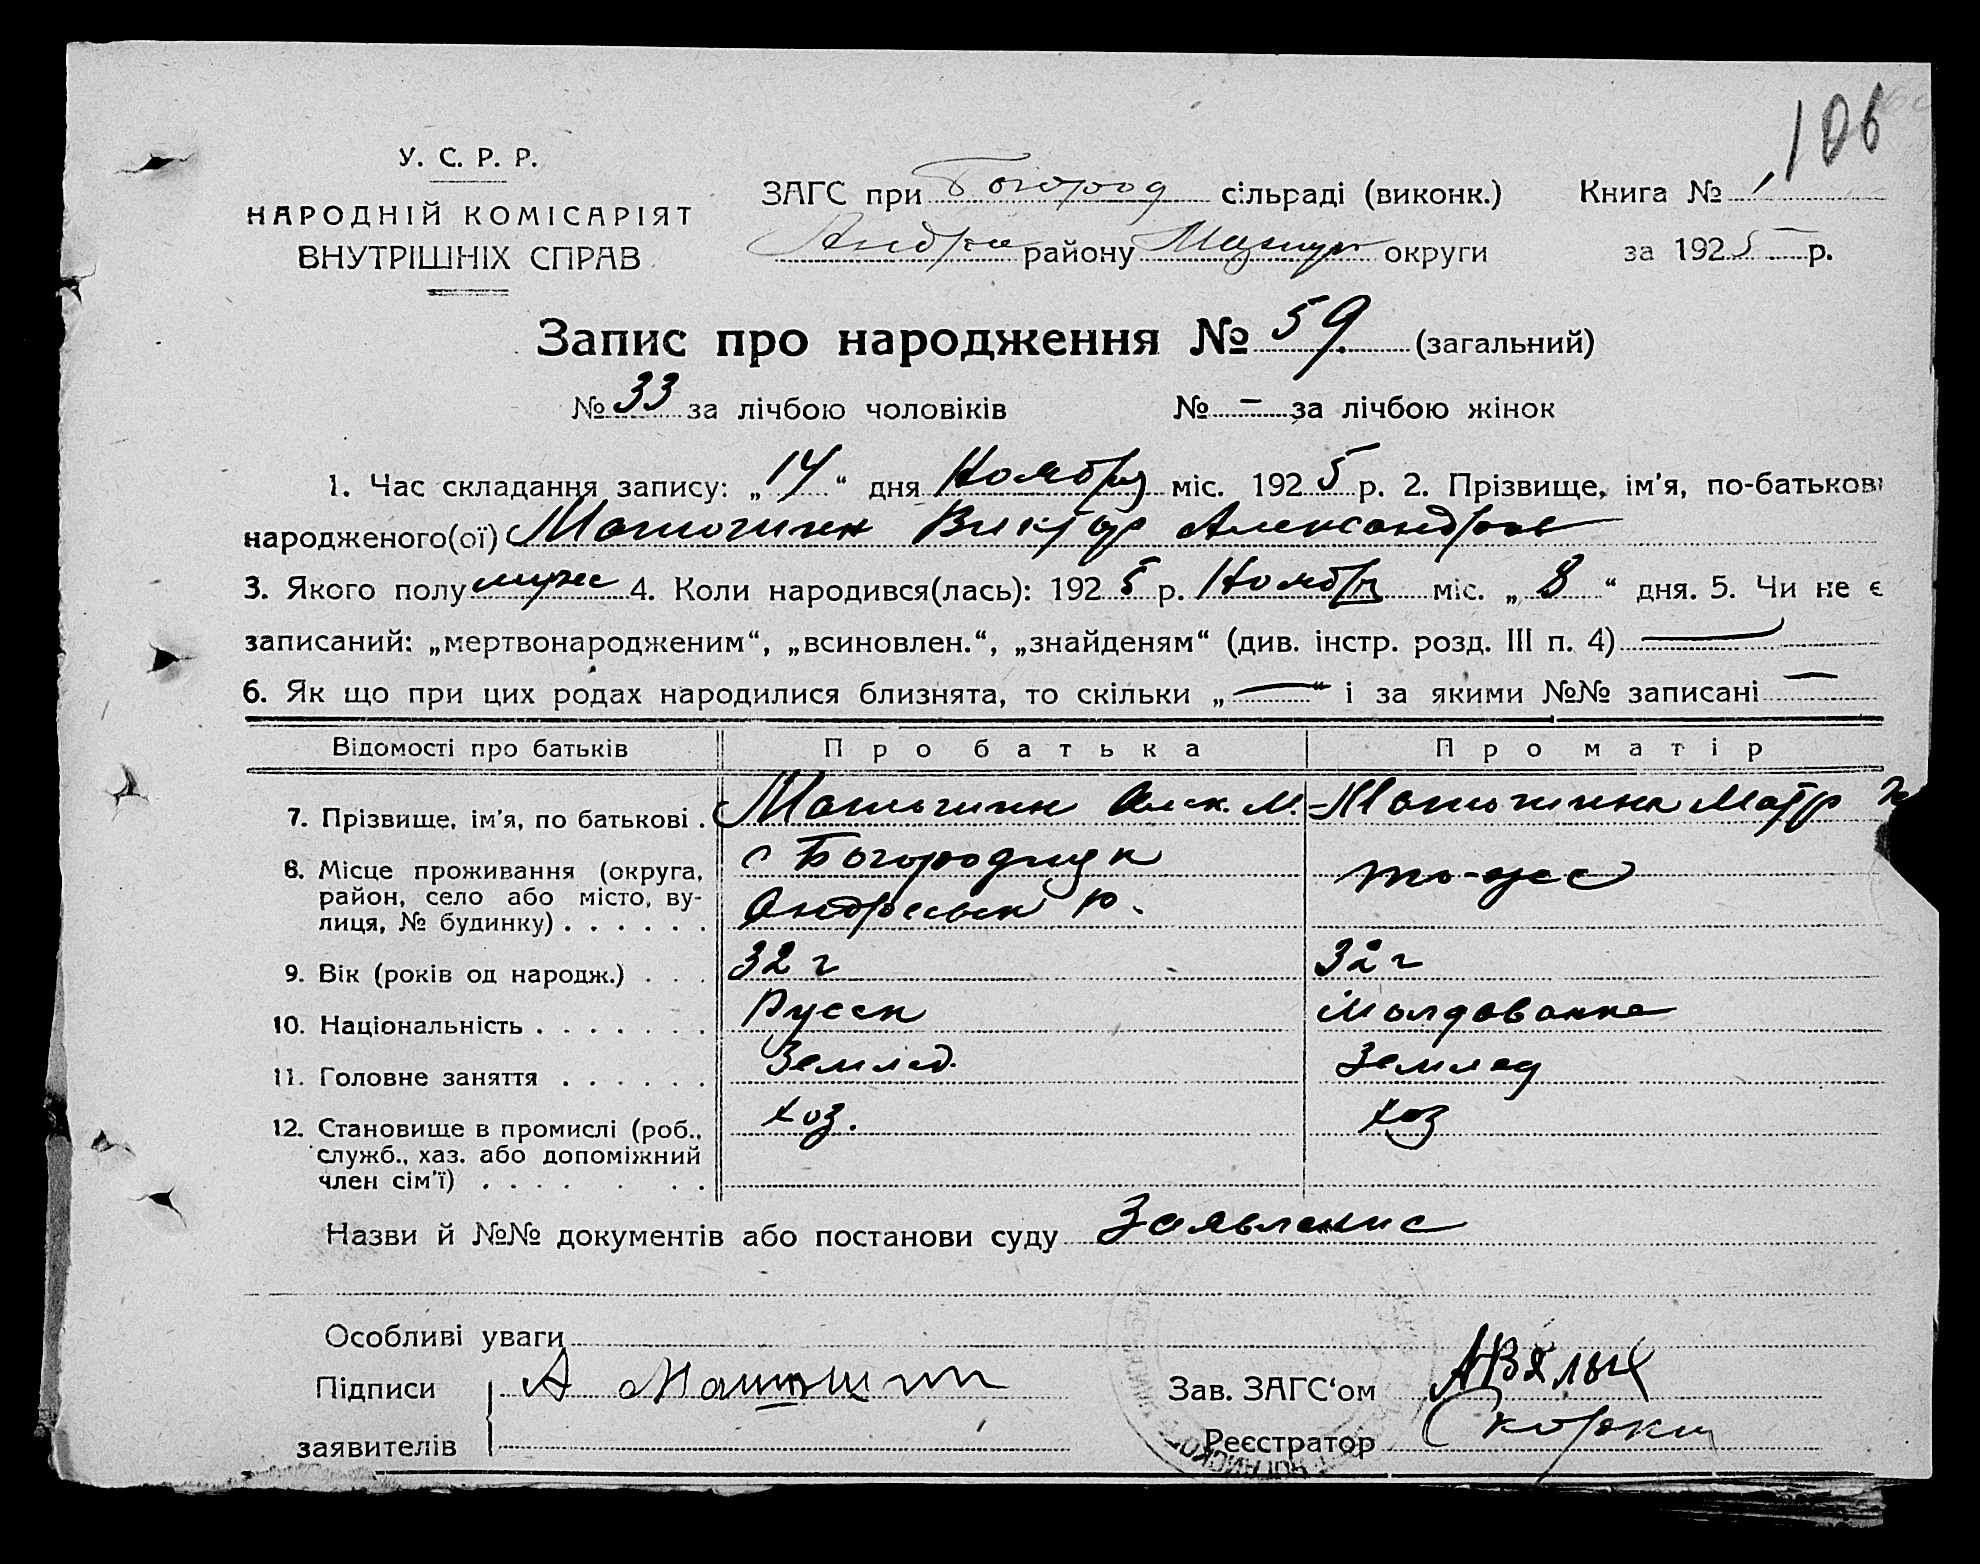 106
У. С. Р. Р.
НАРОДНІЙ КОМІСАРІЯТ
ВНУТРІШНІХ СПРАВ
ЗАГС при Богород сільраді (виконк.) Книга № 1
Андре району округи за 1925 р.
Запис про народження № 59 (загальний)
№ 33 за лічбою чоловіків № – за лічбою жінок
1. Час складання запису: „14“ дня Ноября міс. 1925 р. 2. Прізвище, ім'я, по-батькові
народженого(ої) Матюшин Виктор Александров
3. Якого полу муже 4. Коли народився(лась): 1925 р. Ноября міс. „8“ дня. 5. Чи не є
записаний: „мертвонародженим“, „всиновлен.“, „знайденям“ (див. інстр. розд. III п. 4) —
6. Як що при цих родах народилися близнята, то скільки „—“ і за якими №№ записані —
Відомості про батьків Про батька Про матір
7. Прізвище, ім'я, по батькові . Матюшин Алек. М. Матюшина Матр
8. Місце проживання (округа, район, село або місто, вулиця, № будинку) . . . . . .
с Богородицк то-же
Андреевск р.
9. Вік (років од народж.) . . . 32 г 32 г
10. Національність . . . . . . . Русск Молдованка
11. Головне заняття . . . . . . Землед. Землед
12. Становище в промислі (роб., служб., хаз. або допоміжний член сім'ї) . . . . . . .
хоз. хоз
Назви й №№ документів або постанови суду Заявление
Особливі уваги
Підписи А Матюшин Зав. ЗАГС'ом АВялых
заявителів Реєстратор